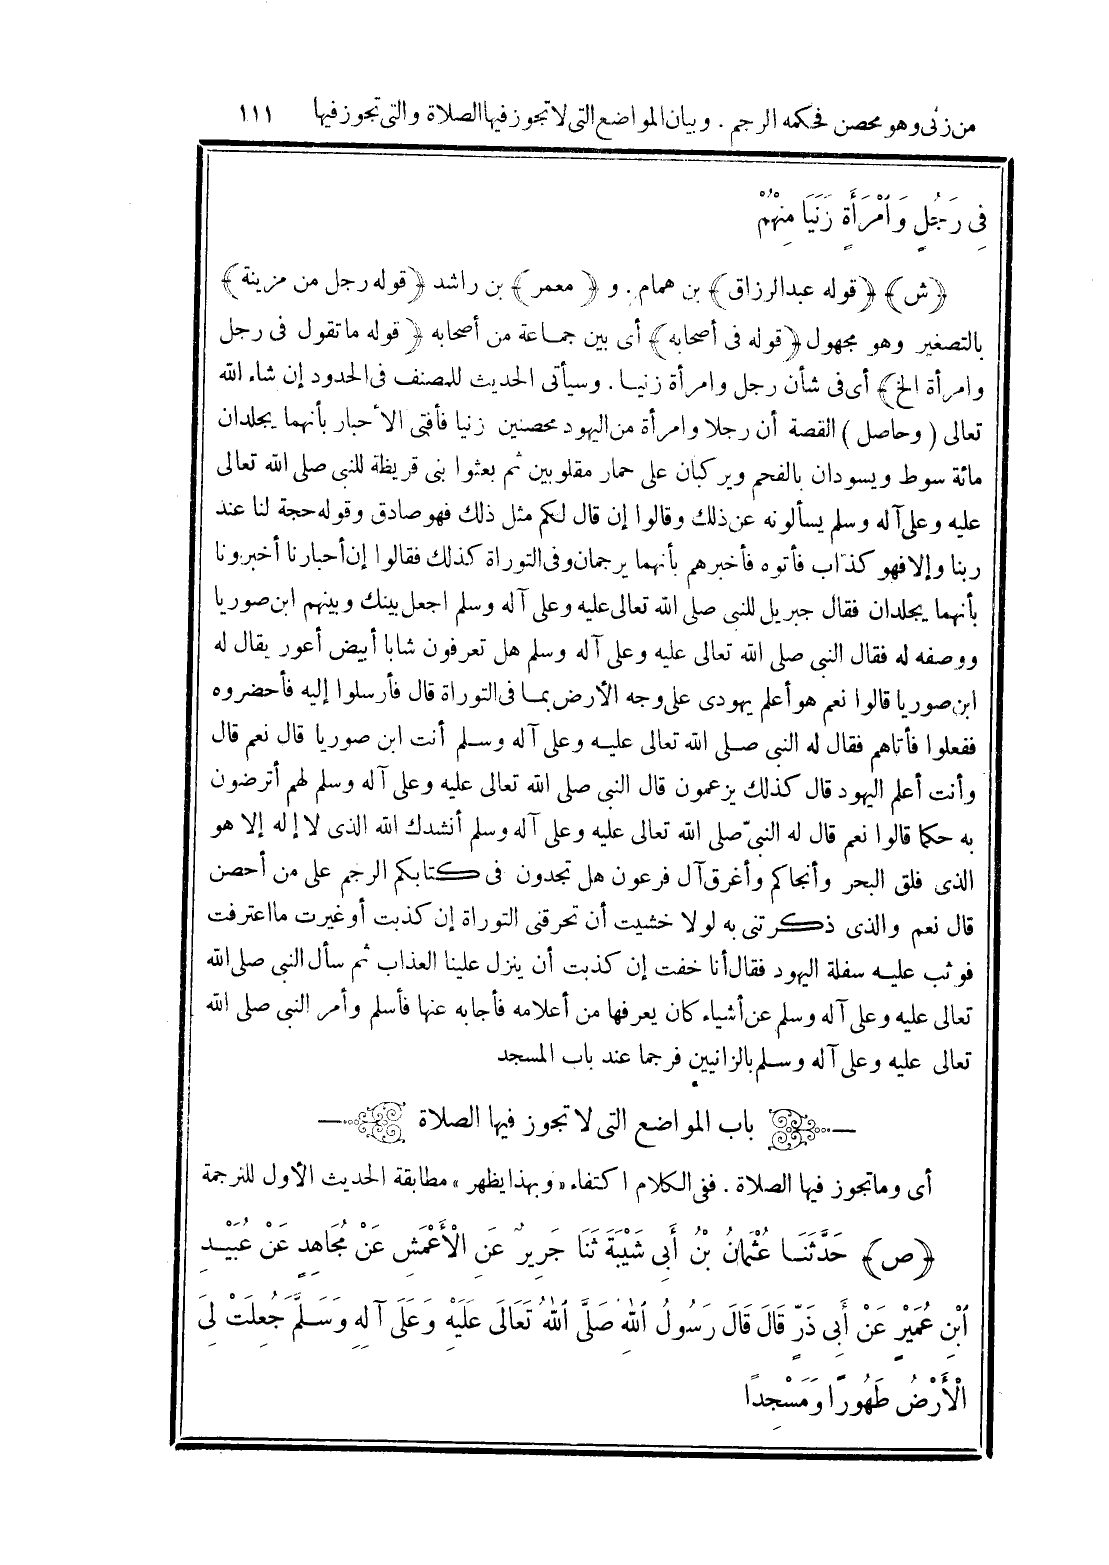 من زنى وهو محصن فحكمه الرجم . وبيان المواضع التى لا تجوز فيها الصلاة والتى تجوز فيها ١١١
فِى رَجُلٍ وَٱمْرَأَةٍ زَنَيَا مِنْهُمْ
﴿ش﴾ ﴿قوله عبدالرزاق﴾ بن همام. و ﴿معمر﴾ بن راشد ﴿قوله رجل من مزينة﴾
بالتصغير وهو مجهول ﴿قوله فى أصحابه﴾ أى بين جماعة من أصحابه ﴿قوله ما تقول فى رجل
وامرأة الخ﴾ أى فى شأن رجل وامرأة زنيا . وسيأتى الحديث للمصنف فى الحدود إن شاء الله
تعالى (وحاصل) القصة أن رجلا وامرأة من اليهود محصنين زنيا فأفتى الأحبار بأنهما يجلدان
مائة سوط ويسودان بالفحم ويركبان على حمار مقلوبين ثم بعثوا بنى قريظة للنبى صلى الله تعالى
عليه وعلى آله وسلم يسألونه عن ذلك وقالوا إن قال لكم مثل ذلك فهو صادق وقوله حجة لنا عند
ربنا وإلا فهو كذاب فأتوه فأخبرهم بأنهما يرجمان وفى التوراة كذلك فقالوا إن أحبارنا أخبرونا
بأنهما يجلدان فقال جبريل للنبى صلى الله تعالى عليه وعلى آله وسلم اجعل بينك وبينهم ابن صوريا
ووصفه له فقال النبى صلى الله تعالى عليه وعلى آله وسلم هل تعرفون شابا أبيض أعور يقال له
ابن صوريا قالوا نعم هو أعلم يهودى على وجه الأرض بما فى التوراة قال فأرسلوا إليه فأحضروه
ففعلوا فأتاهم فقال له النبى صلى الله تعالى عليه وعلى آله وسلم أنت ابن صوريا قال نعم قال
وأنت أعلم اليهود قال كذلك يزعمون قال النبى صلى الله تعالى عليه وعلى آله وسلم لهم أترضون
به حكما قالوا نعم قال له النبىّ صلى الله تعالى عليه وعلى آله وسلم أنشدك الله الذى لا إله إلا هو
الذى فلق البحر وأنجاكم وأغرق آل فرعون هل تجدون فى كتابكم الرجم على من أحصن
قال نعم والذى ذكرتنى به لولا خشيت أن تحرقنى التوراة إن كذبت أو غيرت ما اعترفت
فوثب عليه سفلة اليهود فقال أنا خفت إن كذبت أن ينزل علينا العذاب ثم سأل النبى صلى الله
تعالى عليه وعلى آله وسلم عن أشياء كان يعرفها من أعلامه فأجابه عنها فأسلم وأمر النبى صلى الله
تعالى عليه وعلى آله وسلم بالزانيين فرجما عند باب المسجد
باب المواضع التى لا تجوز فيها الصلاة
أى وما تجوز فيها الصلاة . ففى الكلام اكتفاء «وبهذا يظهر» مطابقة الحديث الأول للترجمة
﴿ص﴾ حَدَّثَنَا عُثْمَانُ بْنُ أَبِى شَيْبَةَ ثَنَا جَرِيرٌ عَنِ الْأَعْمَشِ عَنْ مُجَاهِدٍ عَنْ عُبَيْدِ
ٱبْنِ عُمَيْرٍ عَنْ أَبِى ذَرٍّ قَالَ قَالَ رَسُولُ ٱللهِ صَلَّى ٱللهُ تَعَالَى عَلَيْهِ وَعَلَى آلِهِ وَسَلَّمَ جُعِلَتْ لِىَ
الْأَرْضُ طَهُورًا وَمَسْجِدًا